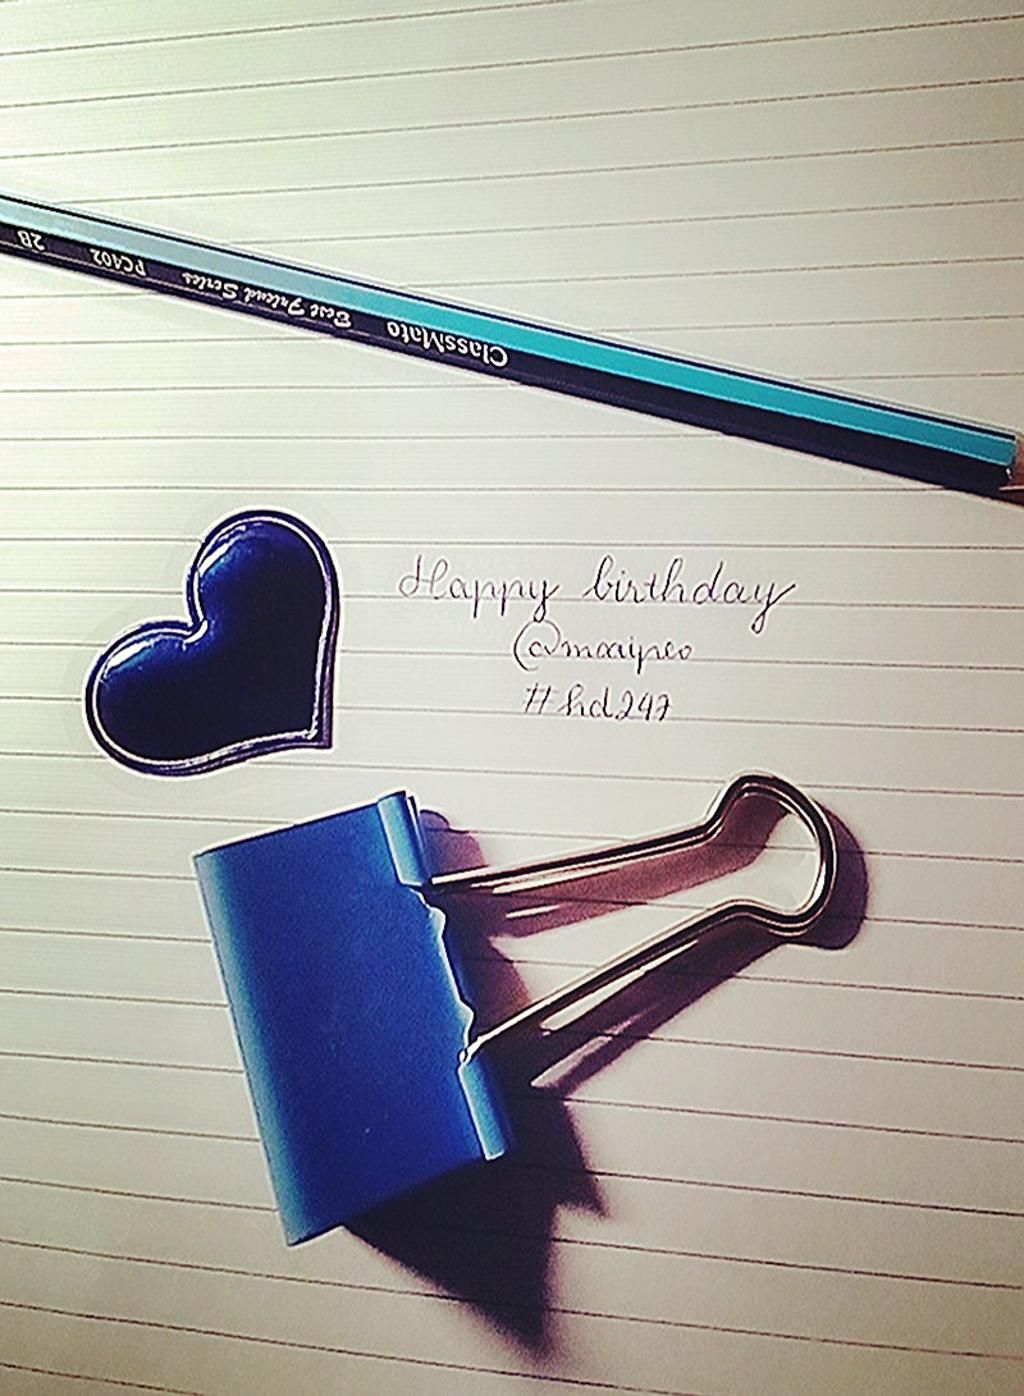 ClassMate Best Friend Series PC402 2B
Happy birthday
@maaipeo
#hd247